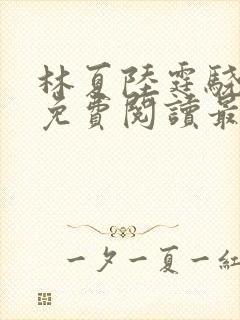 林夏陸霆驍
免費閱讀最
一夕一夏一紅